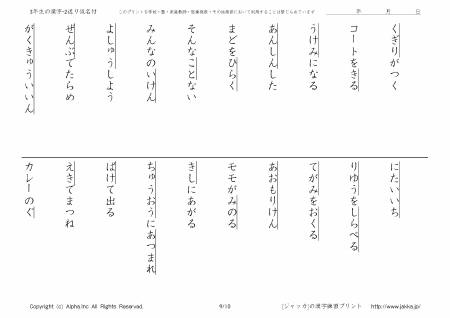 3年生の漢字-2送り仮名付
このプリントを学校・塾・家庭教師・医療施設・その他施設において利用することは禁じられています
年 月 日
くぎりがつく
コートをきる
うけみになる
あんしんした
まどをひらく
そんなことない
みんなのいけん
よしゅうしよう
ぜんぶでたらめ
がくきゅういいん
にたいいち
りゆうをしらべる
てがみをおくる
あおもりけん
モモがみのる
きしにあがる
ちゅうおうにあつまれ
ばけて出る
えきでまつね
カレーのぐ
Copyright (c) Alpha.Inc All Rights Reserved.
9/10
[ジャッカ]の漢字練習プリント http://www.jakka.jp/